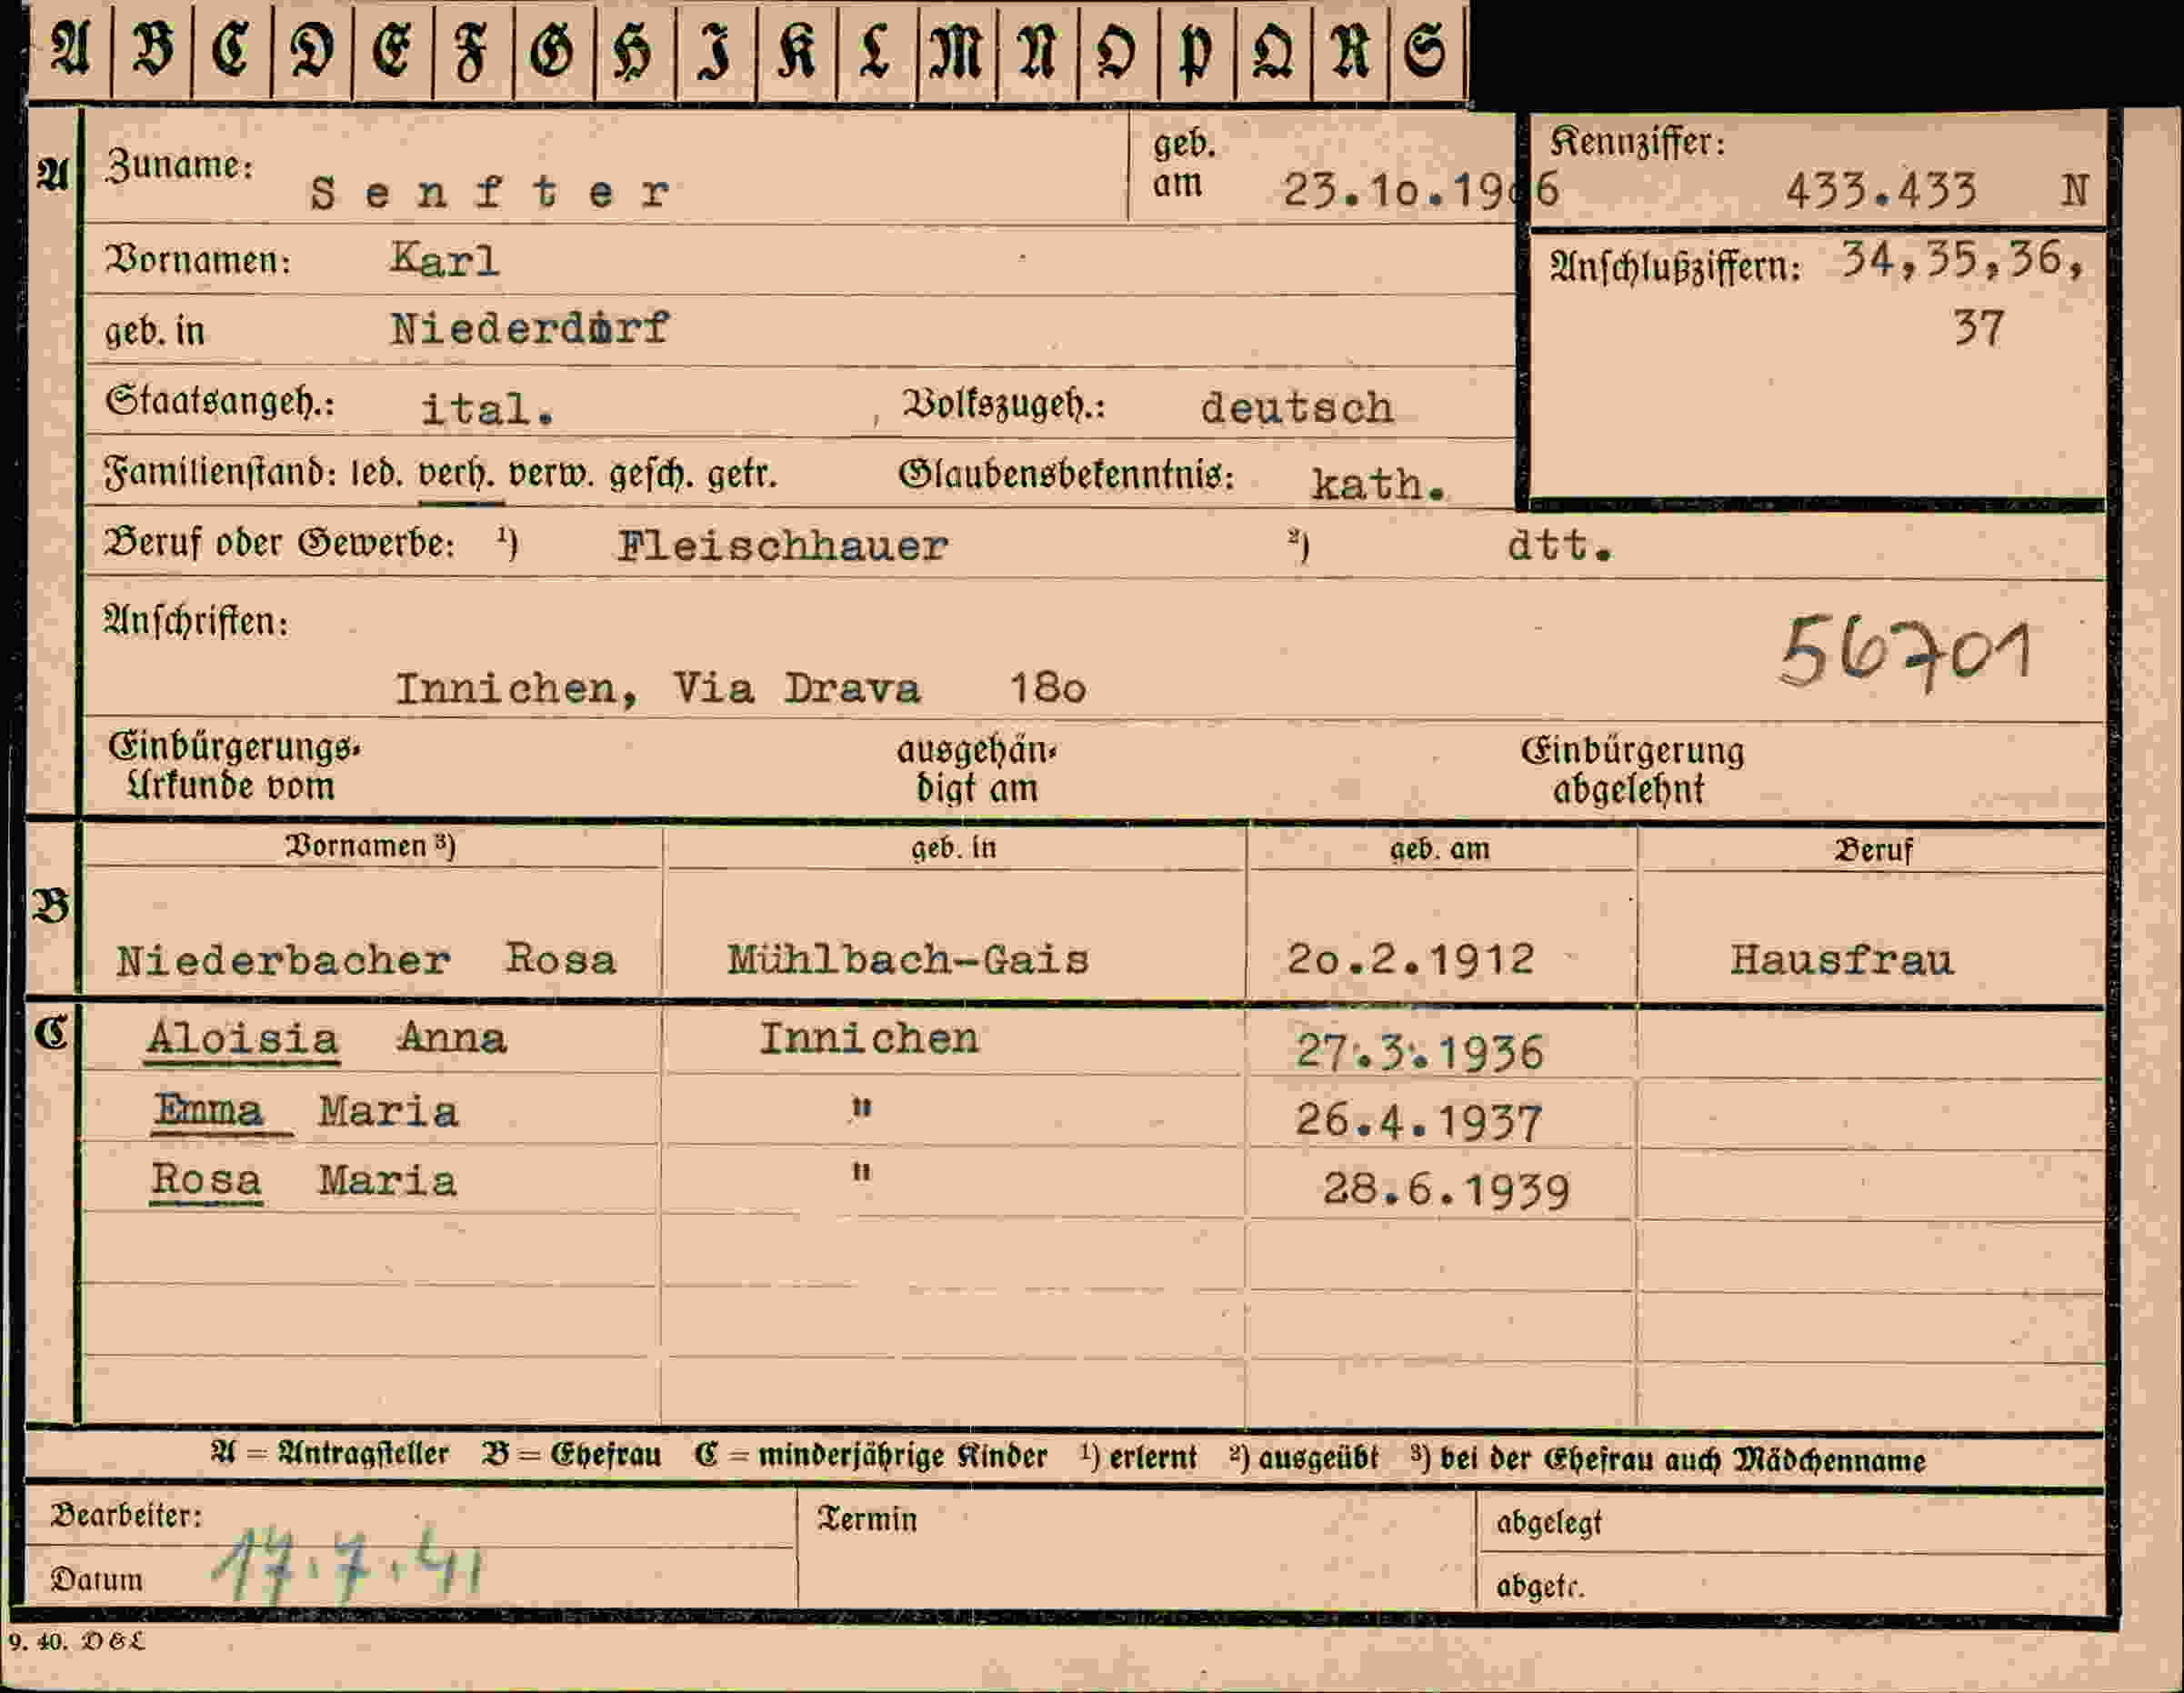 A B C D E F G H I K L M N O P Q R S
A Zuname: Senfter geb. am 23.10.1906 Kennziffer: 433.433 N
Vornamen: Karl Anschlußziffern: 34,35,36,
geb. in Niederdorf 37
Staatsangeh.: ital. Volkszugeh.: deutsch
Familienstand: led. verh. verw. gesch. getr. Glaubensbekenntnis: kath.
Beruf oder Gewerbe: ¹) Fleischhauer ²) dtt.
Anschriften: 56701
Innichen, Via Drava 18o
Einbürgerungs- ausgehän- Einbürgerung
Urkunde vom digt am abgelehnt
Vornamen ³) geb. in geb. am Beruf
B Niederbacher Rosa Mühlbach-Gais 2o.2.1912 Hausfrau
C Aloisia Anna Innichen 27.3.1936
Emma Maria " 26.4.1937
Rosa Maria " 28.6.1939
A = Antragsteller B = Ehefrau C = minderjährige Kinder ¹) erlernt ²) ausgeübt ³) bei der Ehefrau auch Mädchenname
Bearbeiter: Termin abgelegt
Datum 17.7.41 abgetr.
9. 40. D & L